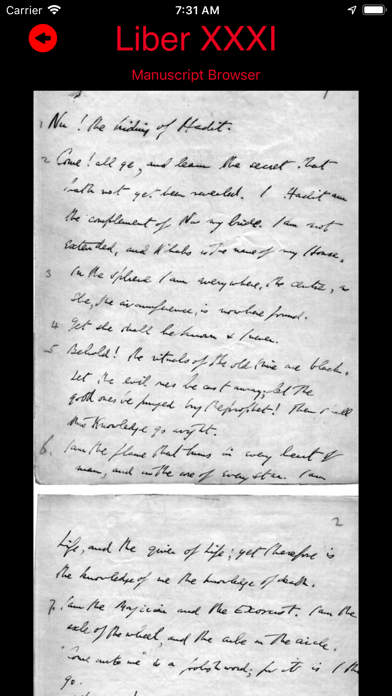 Carrier 7:31 AM
Liber XXXI
Manuscript Browser
1
1 Nu! the hiding of Hadit.
2 Come! all ye, and learn the secret that
hath not yet been revealed. I Hadit am
the complement of Nu my bride. I am not
extended, and Khabs is the name of my House.
3 In the sphere I am everywhere, the centre, as
she, the circumference, is nowhere found.
4 Yet she shall be known & I never.
5 Behold! the rituals of the old time are black.
Let the evil ones be cast away; let the
good ones be purged by the prophet! Then shall
this Knowledge go aright.
6. I am the flame that burns in every heart of
man, and in the core of every star. I am
2
Life, and the giver of Life; yet therefore is
the knowledge of me the knowledge of death.
7. I am the Magician and the Exorcist. I am the
axle of the wheel, and the cube in the circle.
"Come unto me" is a foolish word; for it is I that
go.